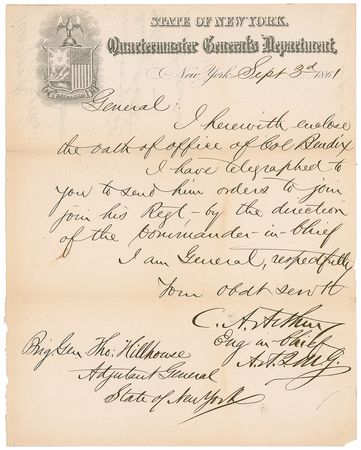 STATE OF NEW YORK,
Quartermaster General's Department,
New York Sept 3d 1861
General:
I herewith enclose
the oath of office of Col Bendix
I have telegraphed to
you to send him orders to join
join his Regt,- by the direction
of the Commander-in-Chief
I am General, respectfully
Your obdt servt
C. A. Arthur
Eng in-chief
A. A. Q. M. G.
Brig Gen Tho: Hillhouse
Adjutant General
State of New York